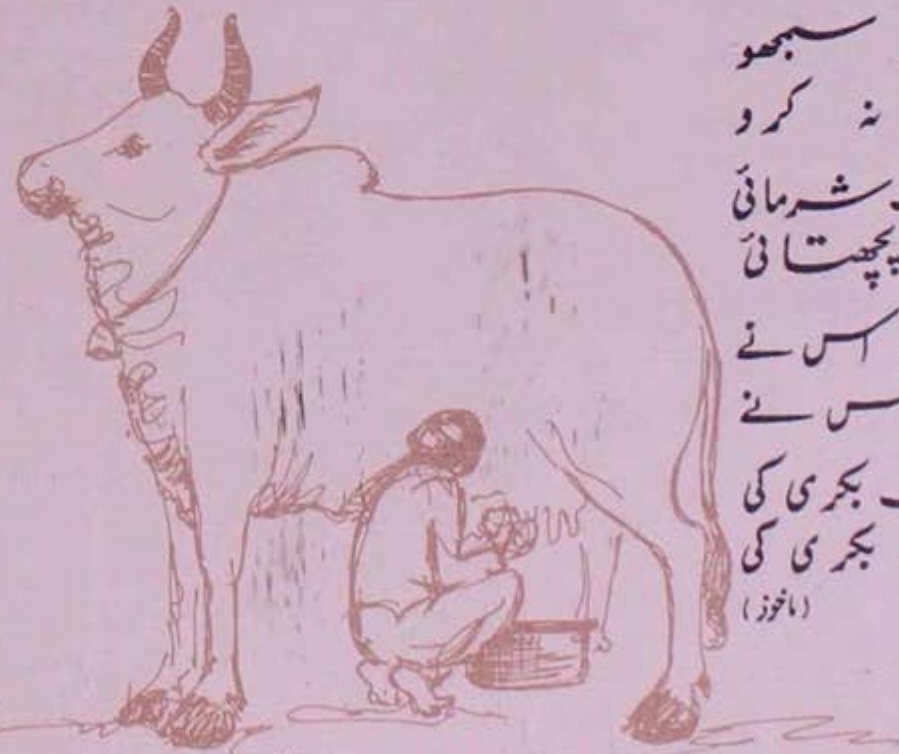 سمجھو
نہ کرو
شرمائی
پچھتائی
اس نے
س نے
بکری کی
بکری کی
(ماخوذ)